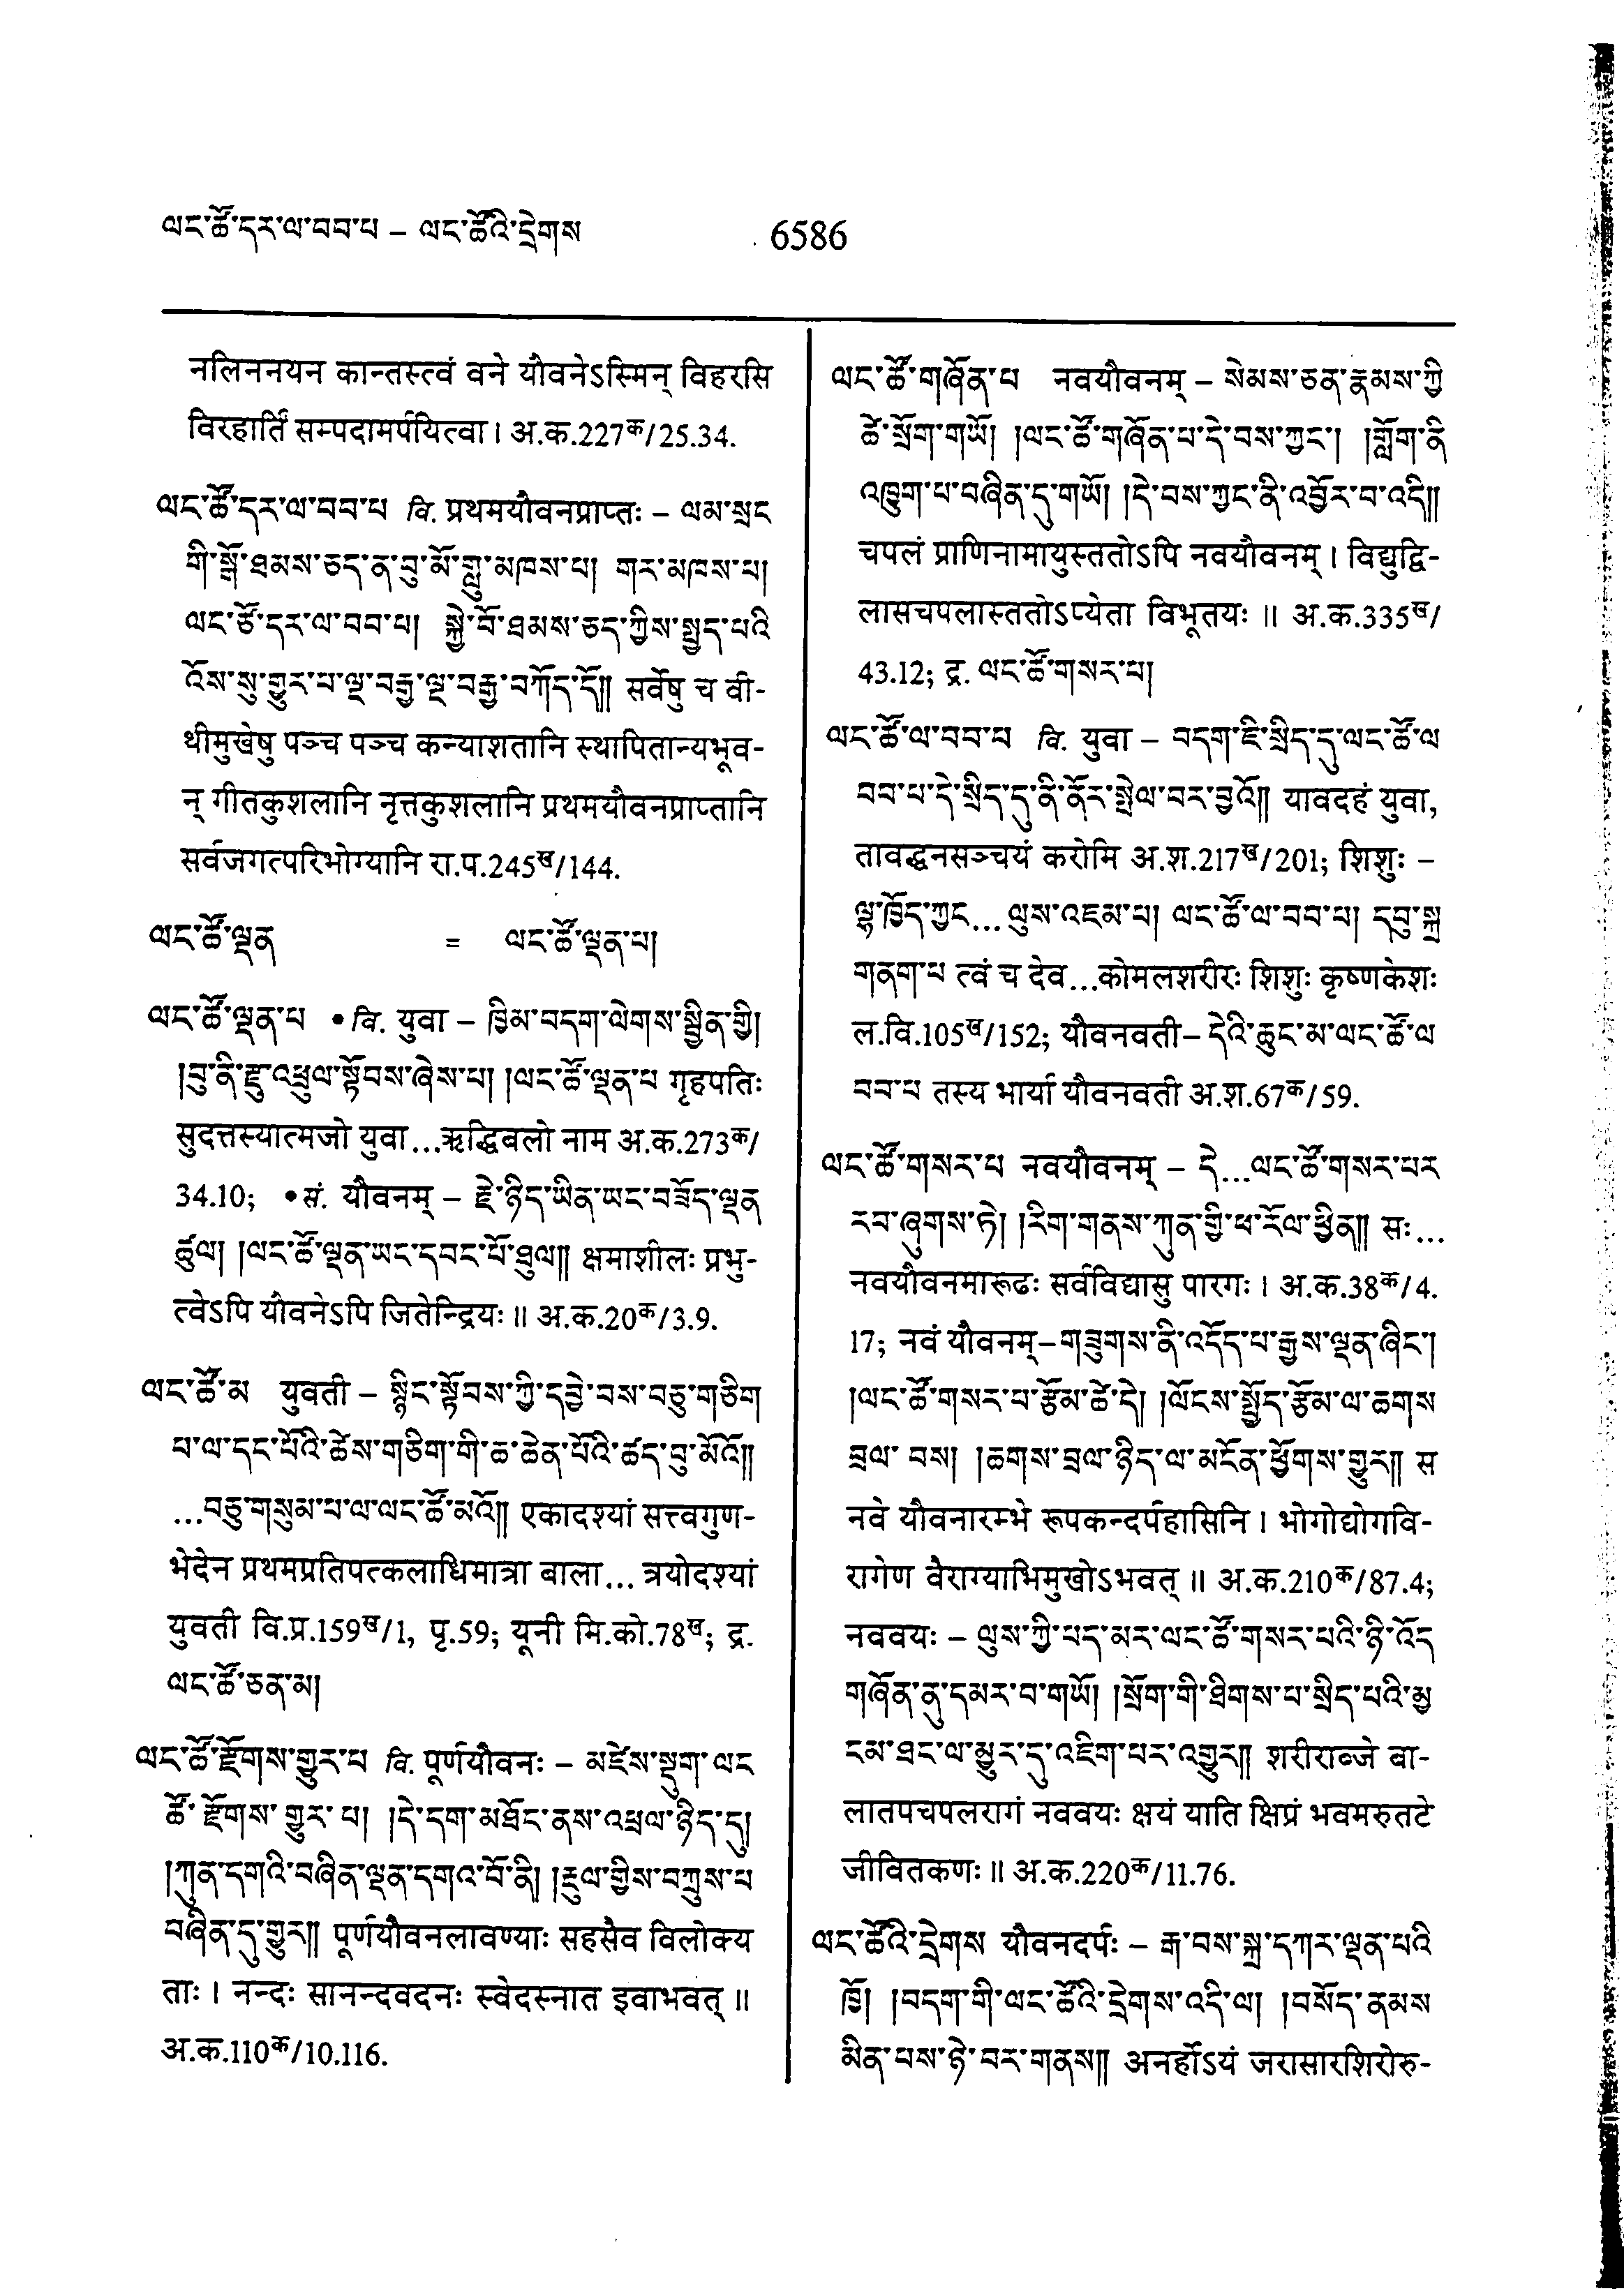 ལང་ཚོ་དར་ལ་བབ་པ – ལང་ཚོའི་དྲེགས
6586
नलिननयन कान्तस्त्वं वने यौवनेऽस्मिन् विहरसि
विरहार्तिं सम्पदामर्पयित्वा । अ.क.227क/25.34.
ལང་ཚོ་དར་ལ་བབ་པ वि. प्रथमयौवनप्राप्तः – ལམ་སྲང
གི་སྒོ་ཐམས་ཅད་ན་བུ་མོ་གླུ་མཁས་པ། གར་མཁས་པ།
ལང་ཚོ་དར་ལ་བབ་པ། སྐྱེ་བོ་ཐམས་ཅད་ཀྱིས་སྤྱད་པའི
འོས་སུ་གྱུར་པ་ལྔ་བརྒྱ་ལྔ་བརྒྱ་བཀོད་དོ༎ सर्वेषु च वी-
थीमुखेषु पञ्च पञ्च कन्याशतानि स्थापितान्यभूव-
न् गीतकुशलानि नृत्तकुशलानि प्रथमयौवनप्राप्तानि
सर्वजगत्परिभोग्यानि रा.प.245ख/144.
ལང་ཚོ་ལྡན = ལང་ཚོ་ལྡན་པ།
ལང་ཚོ་ལྡན་པ • वि. युवा – ཁྱིམ་བདག་ལེགས་སྦྱིན་གྱི།
།བུ་ནི་རྫུ་འཕྲུལ་སྟོབས་ཞེས་པ། །ལང་ཚོ་ལྡན་པ गृहपतिः
सुदत्तस्यात्मजो युवा...ऋद्धिबलो नाम अ.क.273क/
34.10; • सं. यौवनम् – རྗེ་ཉིད་ཡིན་ཡང་བཟོད་ལྡན
ཚུལ། །ལང་ཚོ་ལྡན་ཡང་དབང་པོ་ཐུལ༎ क्षमाशीलः प्रभु-
त्वेऽपि यौवनेऽपि जितेन्द्रियः ॥ अ.क.20क/3.9.
ལང་ཚོ་མ युवती – སྙིང་སྟོབས་ཀྱི་དབྱེ་བས་བཅུ་གཅིག
པ་ལ་དང་པོའི་ཚེས་གཅིག་གི་ཆ་ཆེན་པོའི་ཚད་བུ་མོའོ༎
...བཅུ་གསུམ་པ་ལ་ལང་ཚོ་མའོ༎ एकादश्यां सत्त्वगुण-
भेदेन प्रथमप्रतिपत्कलाधिमात्रा बाला... त्रयोदश्यां
युवती वि.प्र.159ख/1, पृ.59; यूनी मि.को.78ख; द्र.
ལང་ཚོ་ཅན་མ།
ལང་ཚོ་རྫོགས་གྱུར་པ वि. पूर्णयौवनः – མཛེས་སྡུག་ལང
ཚོ་རྫོགས་གྱུར་པ། །དེ་དག་མཐོང་ནས་འཕྲལ་ཉིད་དུ།
།ཀུན་དགའི་བཞིན་ལྡན་དགའ་བོ་ནི། །རྡུལ་གྱིས་བཀྲུས་པ
བཞིན་དུ་གྱུར༎ पूर्णयौवनलावण्याः सहसैव विलोक्य
ताः । नन्दः सानन्दवदनः स्वेदस्नात इवाभवत् ॥
अ.क.110क/10.116.
ལང་ཚོ་གཞོན་པ नवयौवनम् – སེམས་ཅན་རྣམས་ཀྱི
ཚེ་སྲོག་གཡོ། །ལང་ཚོ་གཞོན་པ་དེ་བས་ཀྱང་། །གློག་ནི
འཁྱུག་པ་བཞིན་དུ་གཡོ། །དེ་བས་ཀྱང་ནི་འབྱོར་བ་འདི༎
चपलं प्राणिनामायुस्ततोऽपि नवयौवनम् । विद्युद्वि-
लासचपलास्ततोऽप्येता विभूतयः ॥ अ.क.335ख/
43.12; द्र. ལང་ཚོ་གསར་པ།
ལང་ཚོ་ལ་བབ་པ वि. युवा – བདག་ཇི་སྲིད་དུ་ལང་ཚོ་ལ
བབ་པ་དེ་སྲིད་དུ་ནི་ནོར་སྤེལ་བར་བྱའོ༎ यावदहं युवा,
तावद्धनसञ्चयं करोमि अ.श.217ख/201; शिशुः –
ལྷ་ཁྱོད་ཀྱང...ལུས་འཇམ་པ། ལང་ཚོ་ལ་བབ་པ། དབུ་སྐྲ
གནག་པ त्वं च देव...कोमलशरीरः शिशुः कृष्णकेशः
ल.वि.105ख/152; यौवनवती– དེའི་ཆུང་མ་ལང་ཚོ་ལ
བབ་པ तस्य भार्या यौवनवती अ.श.67क/59.
ལང་ཚོ་གསར་པ नवयौवनम् – དེ...ལང་ཚོ་གསར་པར
རབ་ཞུགས་ཏེ། །རིག་གནས་ཀུན་གྱི་ཕ་རོལ་ཕྱིན༎ सः...
नवयौवनमारूढः सर्वविद्यासु पारगः । अ.क.38क/4.
17; नवं यौवनम्–གཟུགས་ནི་འདོད་པ་རྒྱས་ལྡན་ཞིང་།
།ལང་ཚོ་གསར་པ་རྩོམ་ཚེ་དེ། །ལོངས་སྤྱོད་རྩོམ་ལ་ཆགས
བྲལ་བས། །ཆགས་བྲལ་ཉིད་ལ་མངོན་ཕྱོགས་གྱུར༎ स
नवे यौवनारम्भे रूपकन्दर्पहासिनि । भोगोद्योगवि-
रागेण वैराग्याभिमुखोऽभवत् ॥ अ.क.210क/87.4;
नववयः – ལུས་ཀྱི་པད་མར་ལང་ཚོ་གསར་པའི་ཉི་འོད
གཞོན་ནུ་དམར་བ་གཡོ། །སྲོག་གི་ཐིགས་པ་སྲིད་པའི་མྱ
ངམ་ཐང་ལ་མྱུར་དུ་འཇིག་པར་འགྱུར༎ शरीराब्जे बा-
लातपचपलरागं नववयः क्षयं याति क्षिप्रं भवमरुतटे
जीवितकणः ॥ अ.क.220क/11.76.
ལང་ཚོའི་དྲེགས यौवनदर्पः – རྒ་བས་སྐྲ་དཀར་ལྡན་པའི
ཁྱོ། །བདག་གི་ལང་ཚོའི་དྲེགས་འདི་ལ། །བསོད་ནམས
མིན་པས་ཉེ་བར་གནས༎ अनर्होऽयं जरासारशिरोरु-